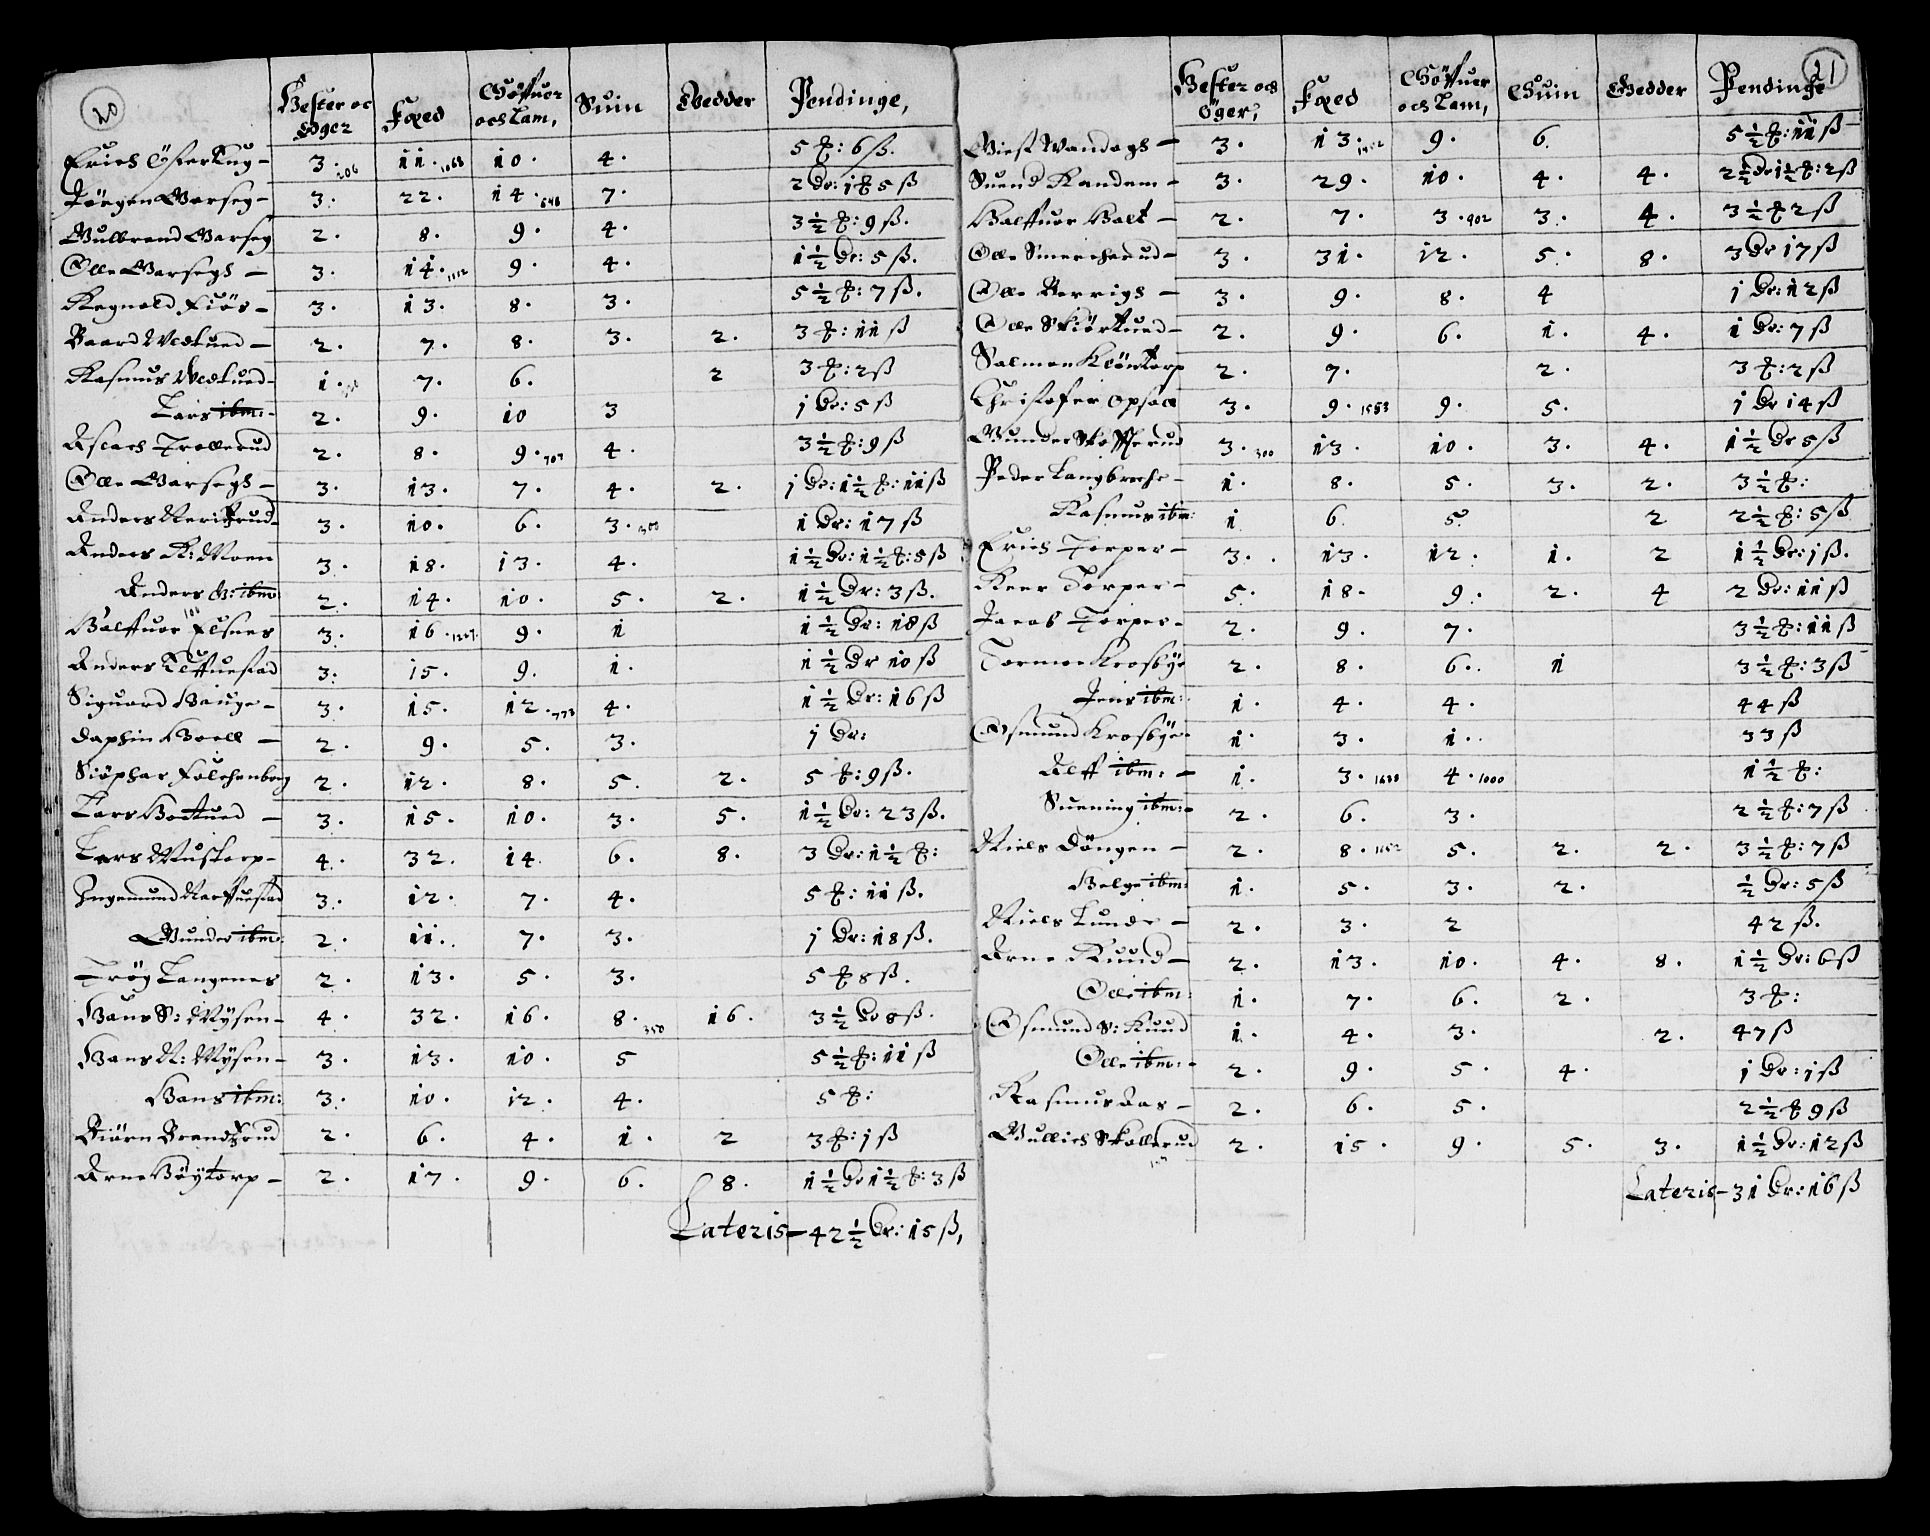 20
Hester oc Öger | Fæed | Söffuer och Lam, | Suin | Giedder | Pendinge,
Erich Österkug - | 3. 206 | 11. 1063 | 10. | 4. | | 5 ƭ: 6 ß.
Jörgen Garseg - | 3. | 22. | 14. 648 | 7. | | 2 Dr: 1 ƭ 5 ß
Gulbrand Garseg | 2. | 8. | 9. | 4. | | 3½ ƭ: 9 ß.
Olle Garsegh - | 3. | 14. 1112 | 9. | 4. | | 1½ Dr: 5 ß.
Regnold Fiös - | 3. | 13. | 8. | 3. | | 5½ ƭ: 7 ß.
Baard | 2. | 7. | 8. | 3. | 2. | 3 ƭ: 11 ß
Rasmus | 1. | 7. | 6. | | 2 | 3 ƭ: 2 ß
Lars ibm: - | 2. | 9. | 10 | 3 | | j Dr: 5 ß
Aslach Trollerud | 2. | 8. | 9. 707 | 4. | | 3½ ƭ: 9 ß
Olle Garsegh - | 3. | 13. | 7. | 4. | 2. | j Dr: 1½ ƭ: 11 ß
Anders | 3. | 10. | 6. | 3. 300 | | 1 Dr: 17 ß
Anders R: Moen | 3. | 18. | 13. | 4. | | 1½ Dr: 1½ ƭ: 5 ß
Anders G: ibm: | 2. | 14. | 10. | 5. | 2. | 1½ Dr: 3 ß.
Halffuor Elsnes | 3. | 16. 1227. | 9. | 1 | | 1½ Dr: 18 ß
Anders | 3. | 15. | 9. | 1. | | 1½ Dr 10 ß
Siguord Hauge - | 3. | 15. | 12. 773 | 4. | | 1½ Dr: 16 ß
Daphin Hoell - | 2. | 9. | 5. | 3. | | j Dr:
Siöphar Folchenborg | 2. | 12. | 8. | 5. | 2. | 5 ƭ: 9 ß.
Lars | 3. | 15. | 10. | 3. | 5. | 1½ Dr: 23 ß.
Lars Mustorp - | 4. | 32. | 14. | 6. | 8. | 3 Dr: 1½ ƭ:
Ingemund Narffuestad | 3. | 12. | 7. | 4. | | 5 ƭ: 11 ß.
Gunder ibm: | 2. | 11. | 7. | 3. | | j Dr: 18 ß.
Trög Langenes | 2. | 13. | 5. | 3. | | 5 ƭ 8 ß.
Hans S: Mysen - | 4. | 32. | 16. | 8. 350 | 16. | 3½ Dr 8 ß.
Hans N: Mysen - | 3. | 13. | 10. | 5 | | 5½ ƭ: 11 ß
Hans ibm: | 3. | 10. | 12. | 4. | | 5 ƭ:
Biörn Brandzrud | 2. | 6. | 4. | 1. | 2 | 3 ƭ: j ß
Arne Höytorp - | 2. | 17. | 9. | 6. | 8. | 1½ Dr 1½ ƭ: 3 ß
Lateris - 42½ Dr: 15 ß,
21
Hester och Öger, | Fæed | Söffuer och Lam, | Suin | Giedder | Pendinge
Giest Mandagh - | 3. | 13. 1412 | 9. | 6. | | 5½ ƭ: 11 ß
Suend Randem - | 3. | 29. | 10. | 4. | 4. | 2½ Dr 1½ ƭ: 2 ß
Halffuor Holt - | 2. | 7. | 3. 902 | 3. | 4. | 3½ ƭ 2 ß
Olle Smercherud - | 3. | 31. | 12. | 5. | 8. | 3 Dr 17 ß
Olle Berrigh - | 3. | 9. | 8. | 4 | | j Dr: 12 ß
Olle Skiörtued - | 2. | 9. | 6. | 1. | 4. | 1 Dr: 7 ß
Salmon Klöntorp | 2. | 7. | | 2. | | 3 ƭ: 2 ß
Christofer Opsall | 3. | 9. 1583 | 9. | 5. | | j Dr 14 ß
Gunder Skofferud | 3. 300 | 13. | 10. | 3. | 4. | 1½ Dr 5 ß
Peder Langbreche - | 1. | 8. | 5. | 3. | 2. | 3½ ƭ:
Rasmus ibm: | 1 | 6. | 5. | | 2 | 2½ ƭ: 5 ß
Erich Torper - | 3. | 13. | 12. | 1. | 2 | 1½ Dr: j ß.
Keer Torper - | 5. | 18. | 9. | 2. | 4 | 2 Dr: 11 ß
Jacob Torper - | 2. | 9. | 7. | | | 3½ ƭ: 11 ß
Tormon Krosbye | 2. | 8. | 6. | 1 | | 3½ ƭ: 3 ß
Jens ibm: | 1. | 4. | 4. | | | 44 ß
Osmund Krosbye - | 1. | 3. | 1. | | | 33 ß
Alff ibm: - | 1. | 3. 1630 | 4. 1000 | | | 1½ ƭ:
Suening ibm: - | 2. | 6. | 3. | | | 2½ ƭ: 7 ß
Niels Döngen - | 2. | 8. 1152 | 5. | 2. | 2. | 3½ ƭ: 7 ß
Helge ibm: | 1. | 5. | 3. | 2. | | ½ Dr: 5 ß
Niels Lunde - | 2. | 3. | 2 | | | 42 ß.
Arne Ruud - | 2. | 13. | 10. | 4. | 8. | 1½ Dr: 6 ß
Olle ibm: | 1. | 7. | 6. | 2. | | 3 ƭ:
Osmund S: Ruud | 1. | 4. | 3. | | 2. | 47 ß
Olle ibm: - | 2. | 9. | 5. | 4. | | j Dr: j ß
Rasmus Aas - | 2. | 6. | 5. | | | 2½ ƭ 9 ß
Gullich Skallerud | 2. | 15. | 9. | 5. | 3. | 1½ Dr: 12 ß
Lateris - 31 Dr: 16 ß